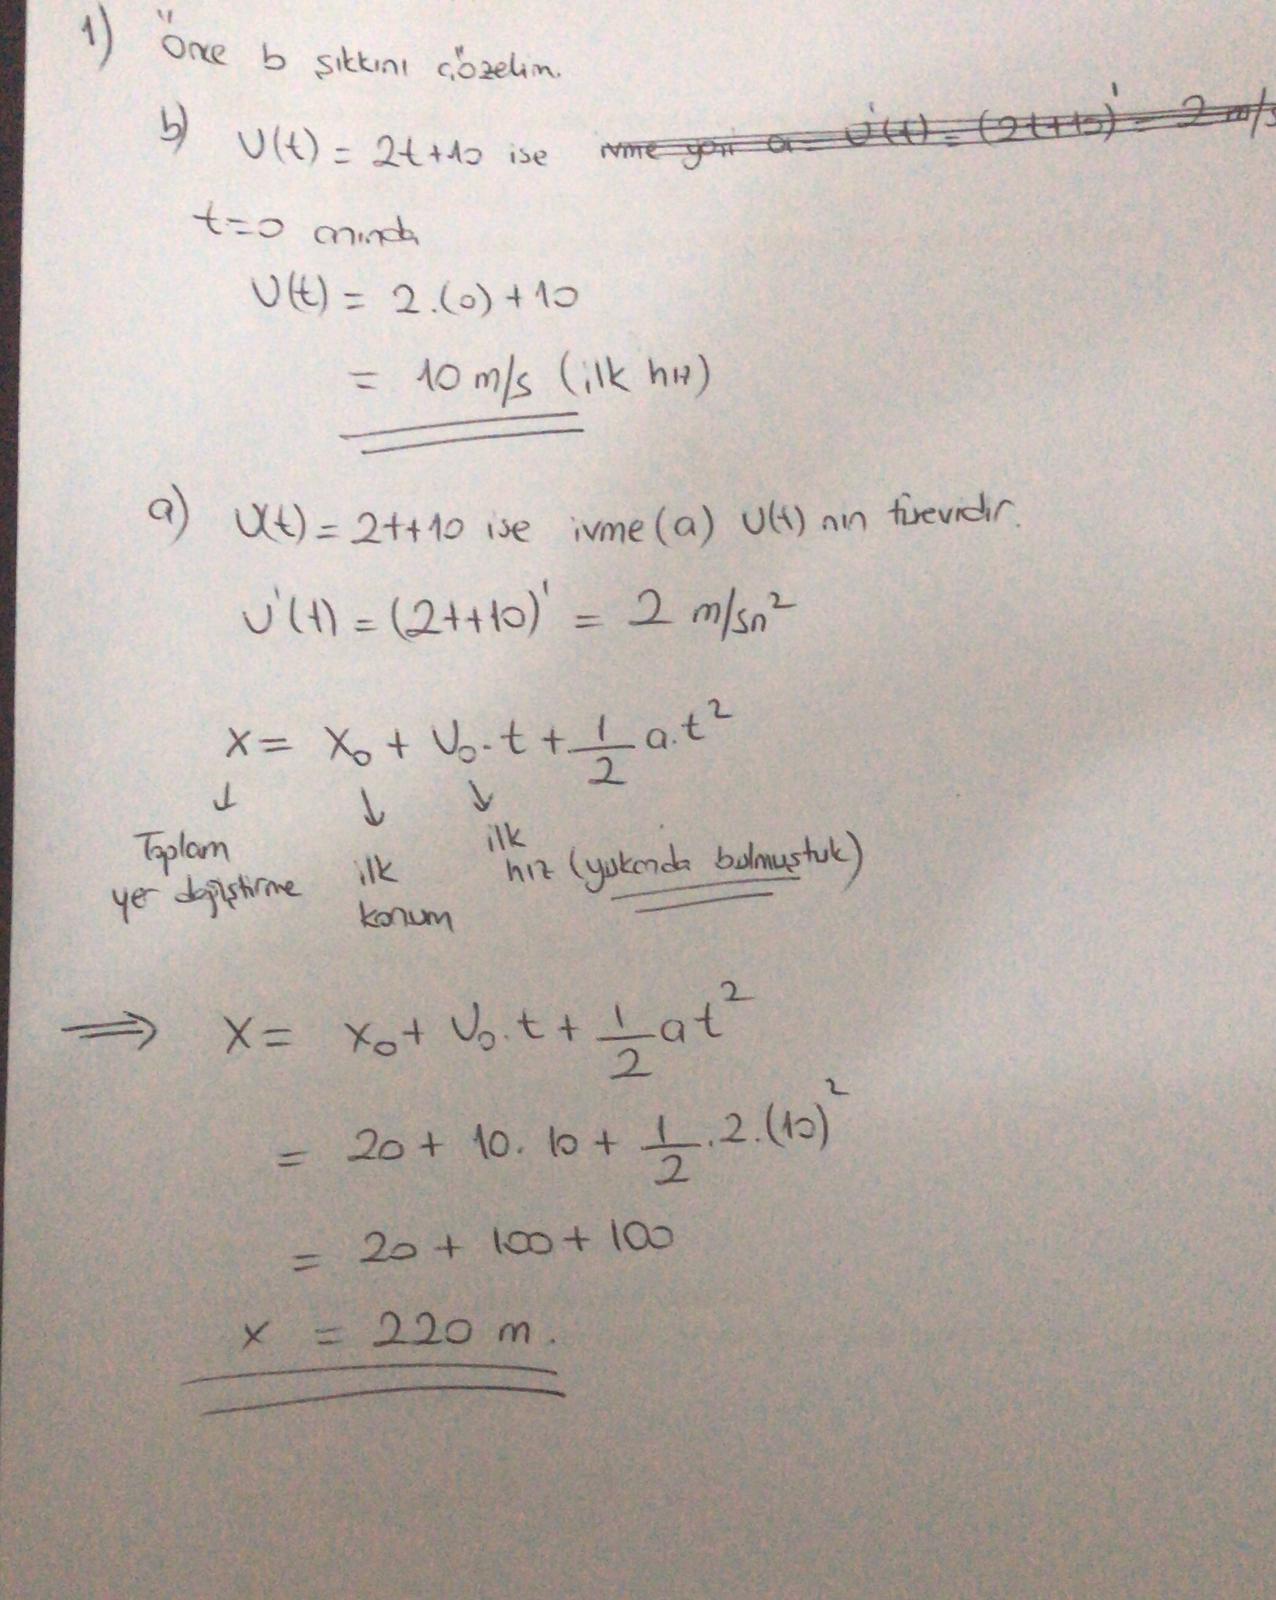 1) Önce b şıkkını çözelim.
b) U(t) = 2t+10 ise ivme yani a = U'(t) = (2t+10)' = 2 m/s
t=0 anında
U(t) = 2.(0) + 10
= 10 m/s (ilk hız)
a) U(t) = 2t+10 ise ivme (a) U(t) nin türevidir.
U'(t) = (2t+10)' = 2 m/sn²
x = x₀ + U₀.t + 1/2 a.t²
↓ ↓ ↓
Toplam yer değiştirme
ilk konum
ilk hız (yukarıda bulmuştuk)
⇒ x = x₀ + U₀.t + 1/2 at²
= 20 + 10.10 + 1/2.2.(10)²
= 20 + 100 + 100
x = 220 m.